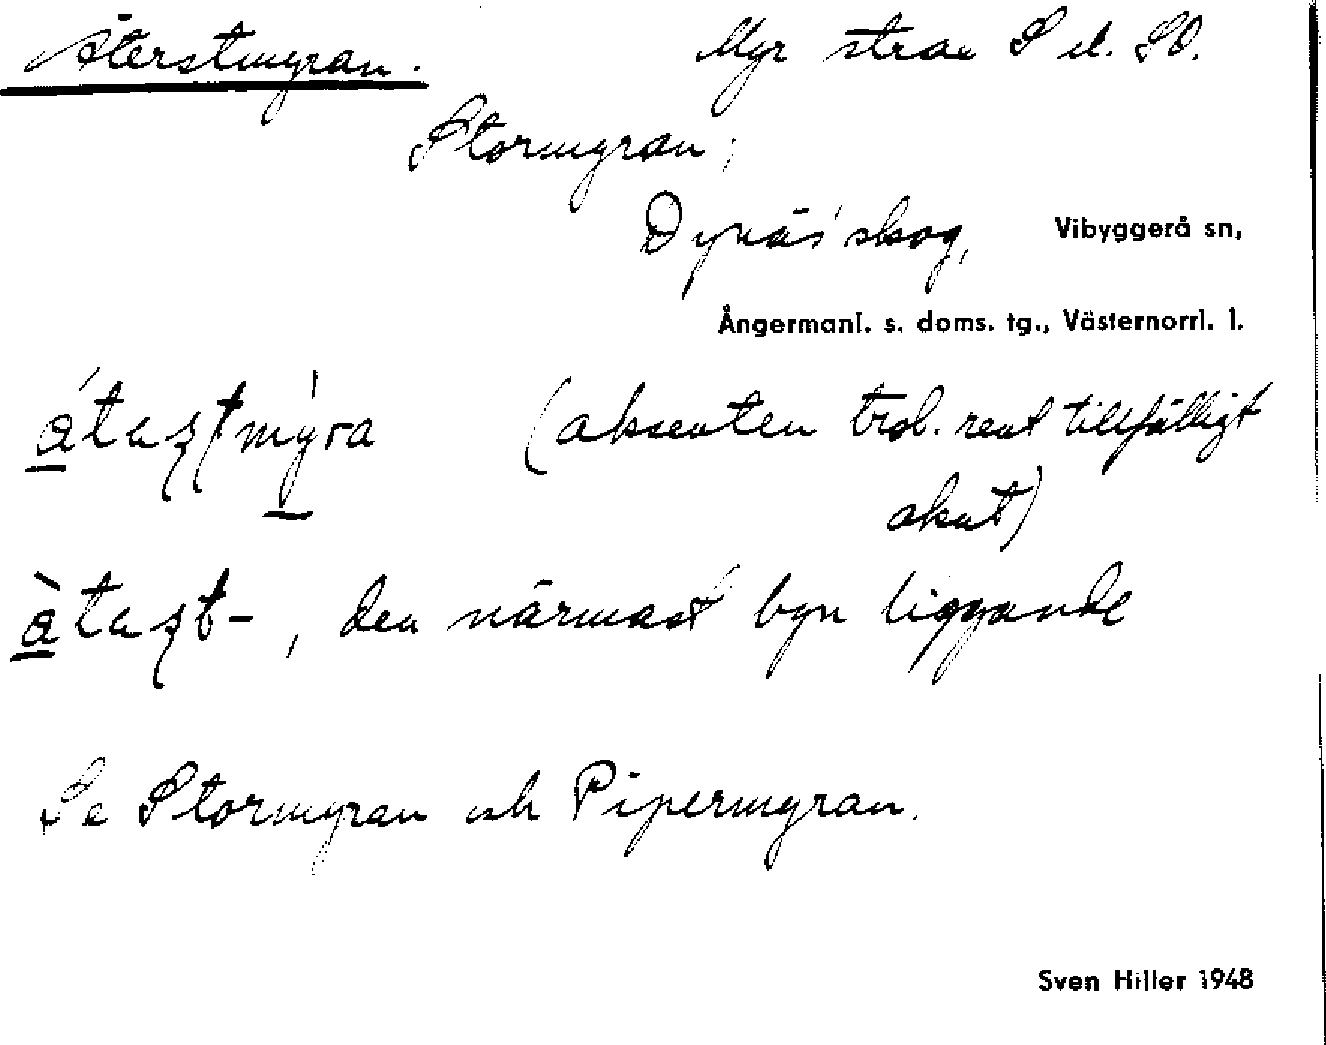 Återstmyran. Myr strax S el. SO.
Stormyran;
Dynäs' skog, Vibyggerå sn,
Ångermanl. s. doms. tg., Västernorrl. l.
(aksenten trol. rent tillfälligt
akut)
, den närmast byn liggande
Se Stormyran och Pipermyran.
Sven Hiller 1948